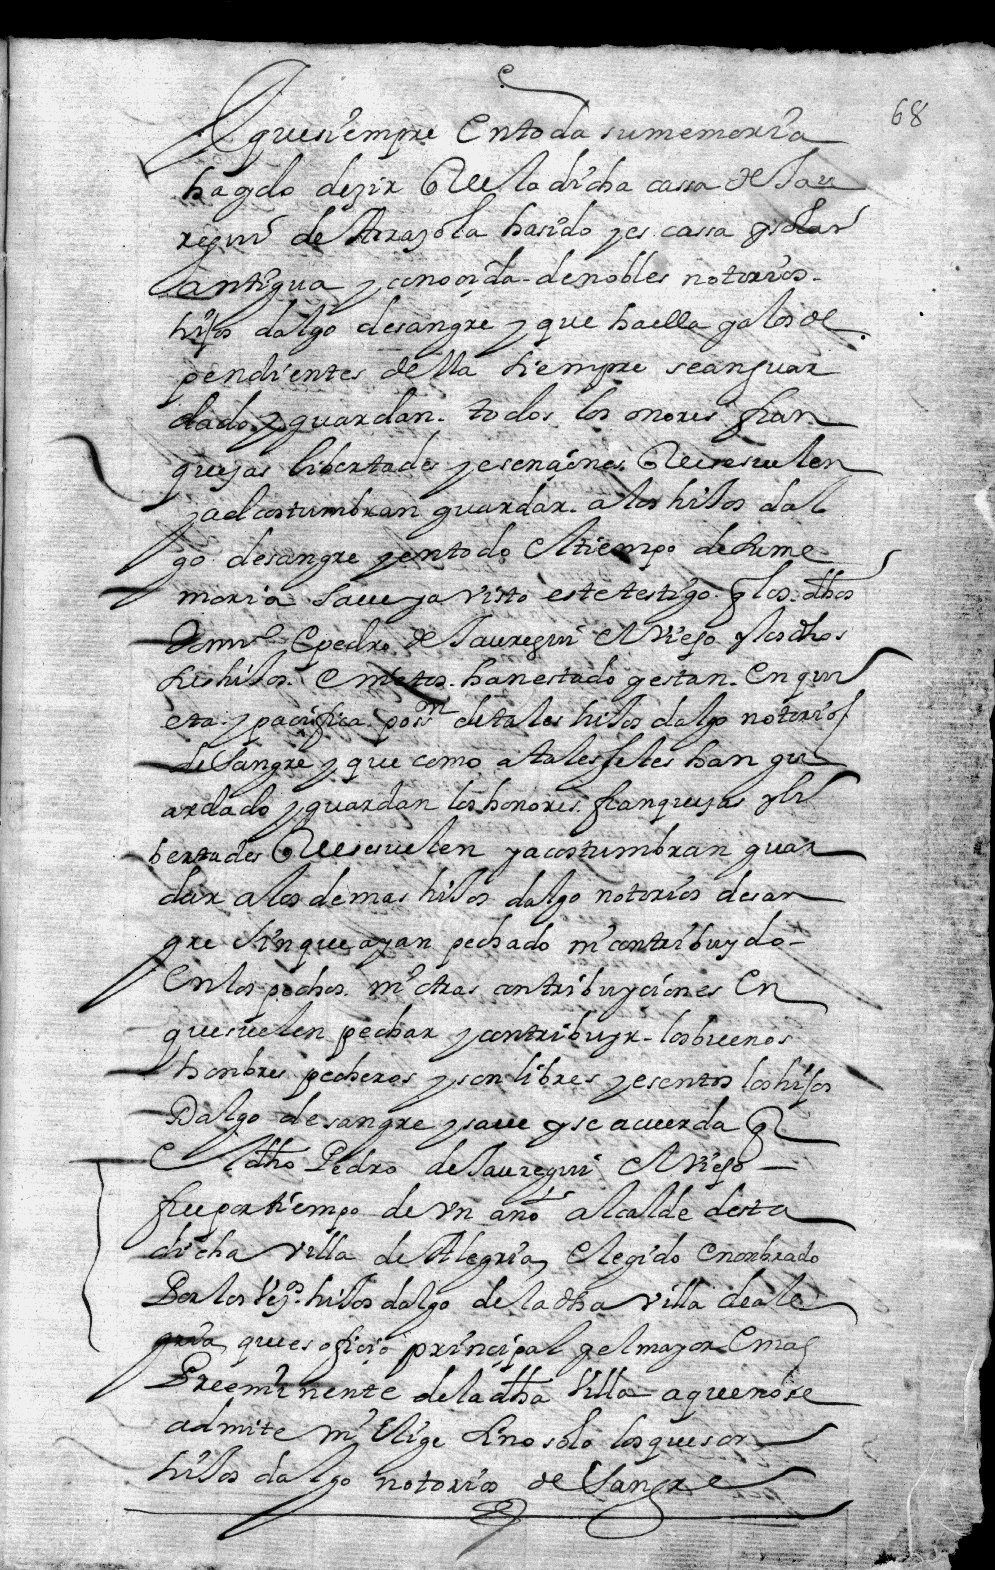 68
que siempre en toda su memoria
ha oydo dezir que la dicha cassa de Jau
regui de Arrayola ha sido y es cassa y solar
antigua y conocida de nobles notorios
hijos dalgo de sangre y que ha ella y a los de
pendientes della siempre se an guar
dado y guardan todos los onores fran
quezas libertades y esenciones que se suelen
y acostumbran guardar a los hijos dal
go de sangre y en todo el tiempo de su me
moria save y a visto este testigo q los dhos
Pedro de Jauregui el Viejo y los dhos
sus hijos e nietos han estado y estan en qui
eta y pacifica posⁿ de tales hijos dalgo notorios
de sangre y que como a tales se les han gu
ardado y guardan los honores franquezas y li
bertades que se suelen y acostumbran guar
dar a los demas hijos dalgo notorios de san
gre sin que ayan pechado ni contribuydo
en los pechos ni otras contribuyciones en
que suelen pechar y contribuyr los buenos
honbres pecheros y son libres y esentos los hijos
Dalgo de sangre y save y se acuerda q
el dho Pedro de Jauregui el Viejo
fue por tiempo de un año alcalde desta
dicha villa de Alegria elegido e nonbrado
Por los Vezos hijos dalgo de la dha villa de ale
gria que es oficio principal y el mayor e mas
Preeminente de la dha Villa a que no se
admite ni elige sino solo los que son
hijos dalgo notorios de sangre